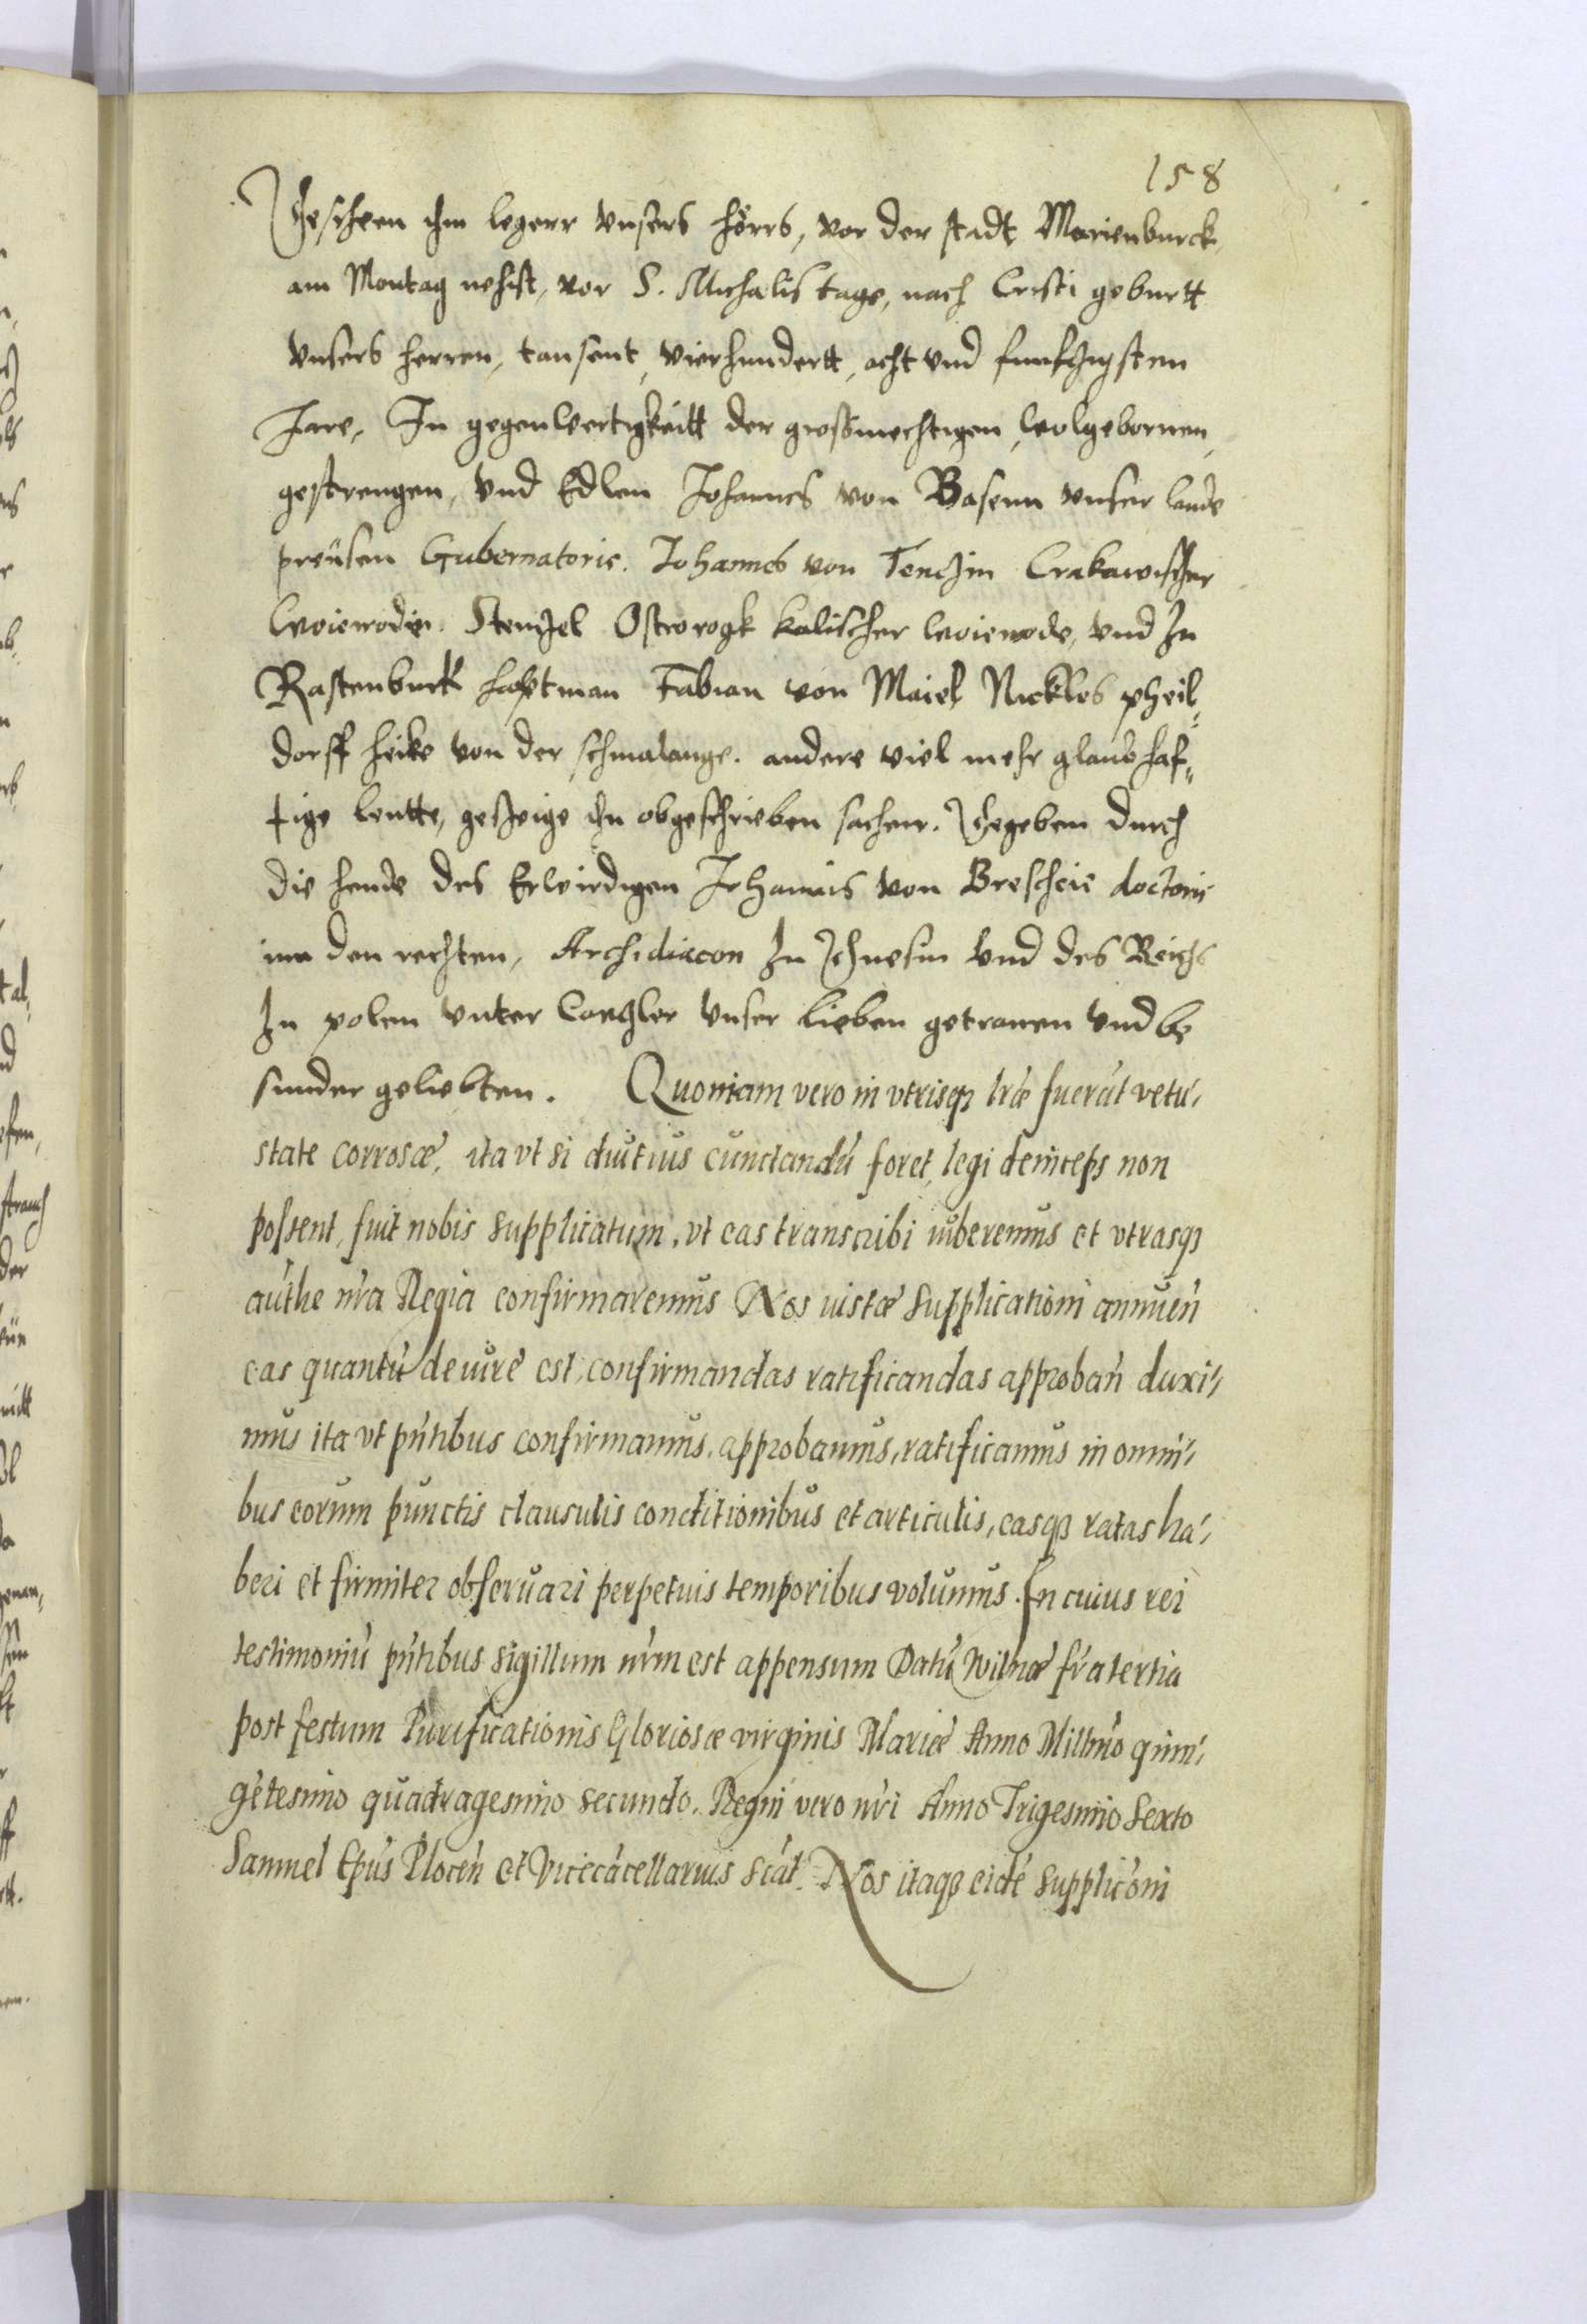 158
Gescheen ihm legerr vnsers hörrs, vor der stadt Marienburck
am Montag nehist, vor S. Michalis tage, nach Cristi geburtt
vnsers herren, tausent, vierhundertt, acht vnd funfzigsten
Jare, In gegenwertigkeitt der grosmechtigen, wolgebornen,
gestrengen, vnd Edlen Johannes von Basenn vnser lande
preüsen Gubernatoris. Johannes von Tenczin Crakawischer
woiewoden. Stenzel Ostrorogk kalischer woiewode, vnd Zu
Rastenburk haptman Fabian von Maiel Nickles pheil,
dorff heike von der schmalange. andere viel mehr glaubhaf,
tige leutte, geszeige ihn obgeschrieben sachenn. Gegeben durch
die hende des Erwirdigen Johannis von Brescheie doctoris
inn den rechten, Archidiacon Zu Gnesin vnd des Reichs
Zu polen vnter Canzler vnser lieben getrauen vnd be
sunder geliebten. Quoniam vero in vtrisqz lrae fuerūt vetu,
state corrosae, ita vt si diutius cunctandū foret, legi deinceps non
possent, fuit nobis supplicatum, vt eas transcribi iuberemus et vtrasqz
authe nra Regia confirmaremus Nos iustae supplicationi annuen
eas quantū de iure est, confirmandas ratificandas approban duxi,
mus ita vt pntibus confirmamus, approbamus, ratificamus in omni,
bus eorum punctis clausulis conditionibus et articulis, easqz ratas ha,
beri et firmiter obseruari perpetuis temporibus volumus. In cuius rei
testimoniū pntibus sigillum nrm est appensum Datū Wilnae fra tertia
post festum Purificationis Gloriosae virginis Mariae Anno Millmo quin,
gētesimo quadragesimo secundo. Regni vero nri Anno Trigesimo sexto
Samuel Epus Plocen et Vicecācellarius scāt. Nos itaqz eidē supplicōni